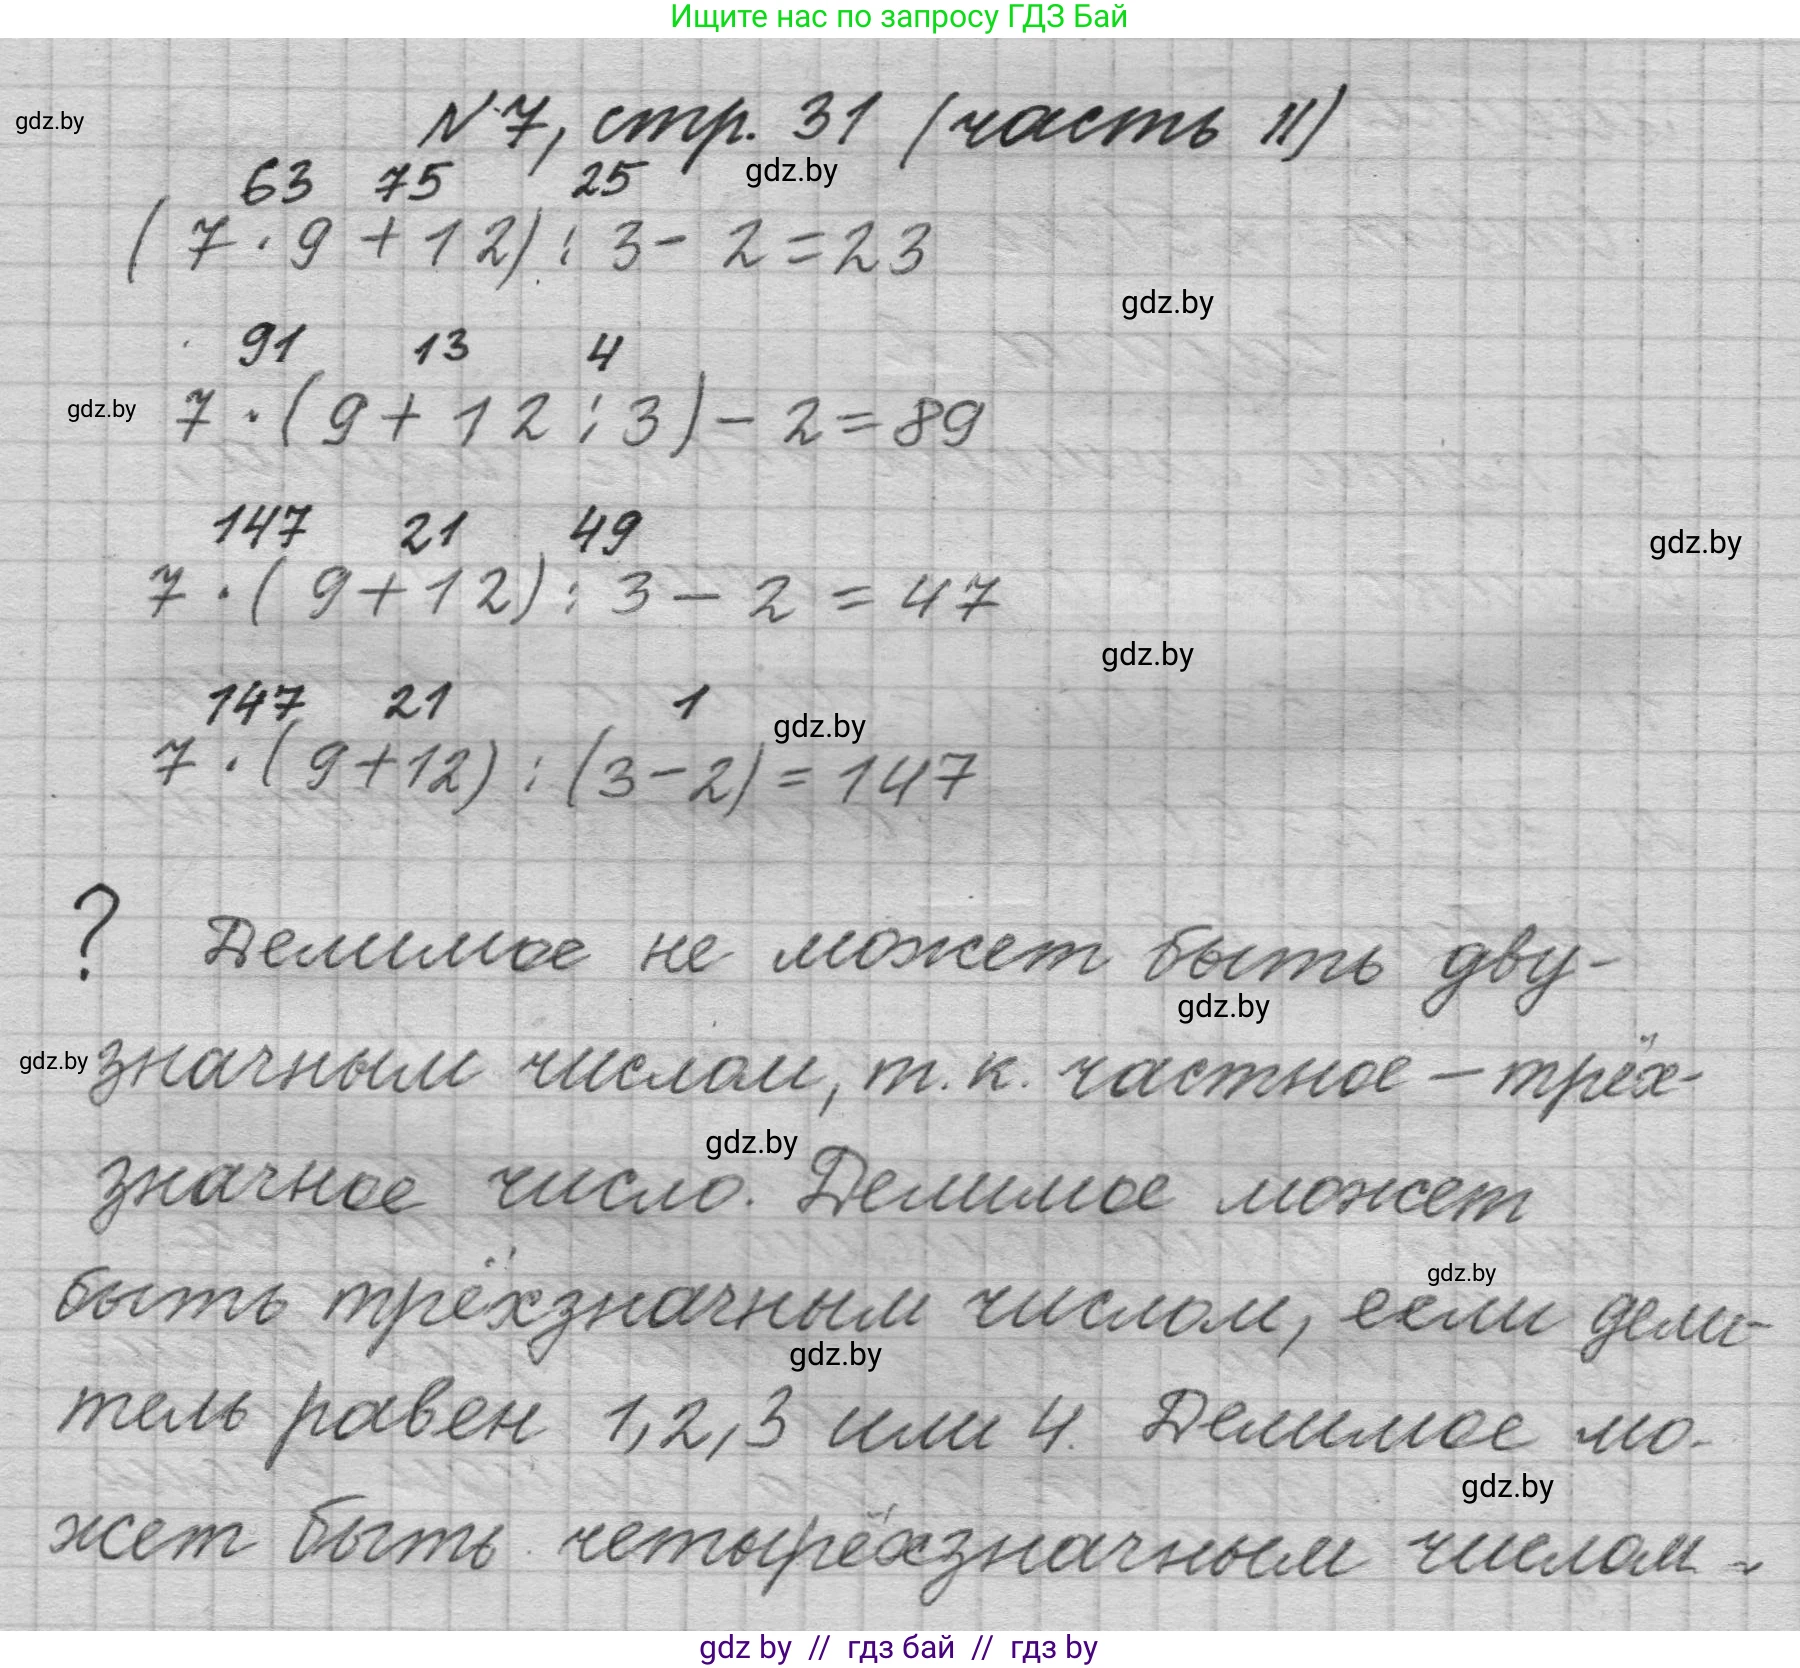 Ищите нас по запросу ГДЗ Бай
№7, стр. 31 (часть II)
gdz.by
gdz.by
63 75 25
(7 · 9 + 12) : 3 - 2 = 23
gdz.by
91 13 4
7 · (9 + 12 : 3) - 2 = 89
gdz.by
147 21 49
gdz.by
7 · (9 + 12) : 3 - 2 = 47
gdz.by
147 21 1
gdz.by
7 · (9 + 12) : (3 - 2) = 147
? Делимое не может быть дву-
gdz.by
gdz.by
значным числом, т.к. частное - трёх-
gdz.by
значное число. Делимое может
gdz.by
быть трёхзначным числом, если дели-
gdz.by
тель равен 1, 2, 3 или 4. Делимое мо-
gdz.by
жет быть четырёхзначным числом -
gdz by // гдз бай // гдз by